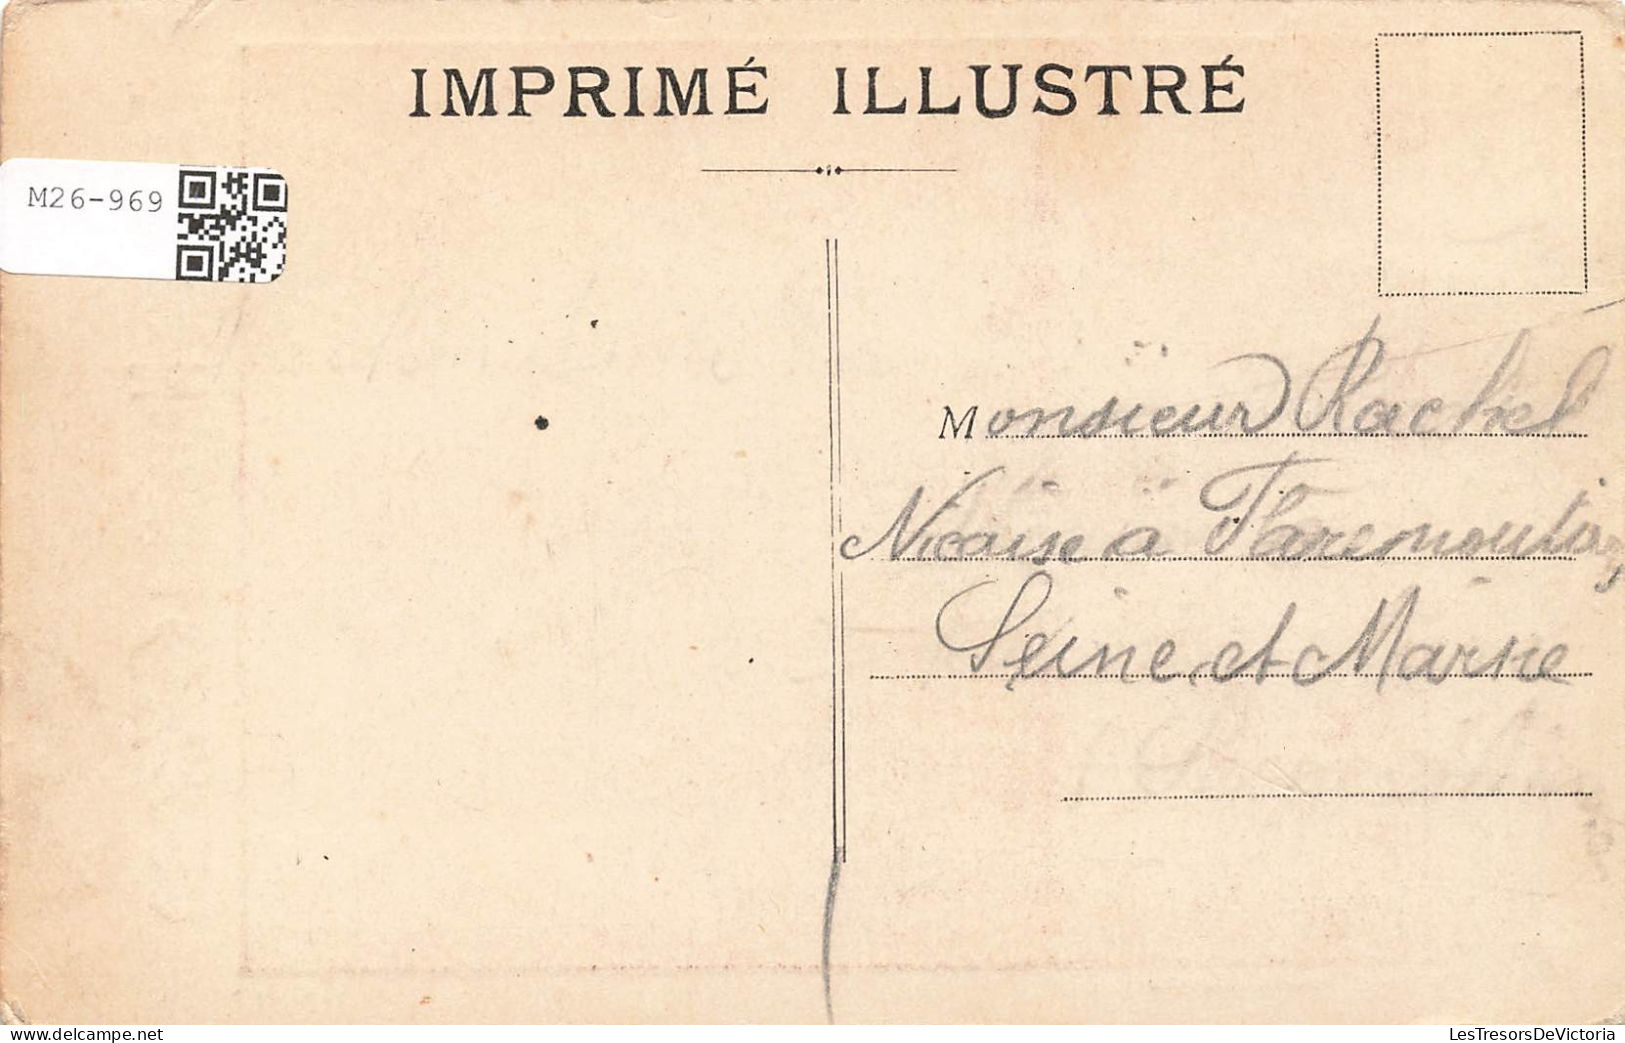 IMPRIMÉ ILLUSTRÉ
M26-969
Monsieur Rachel
Nicaise a Faremoutiers
Seine et Marne
delcampe.net
LesTresorsDeVictoria